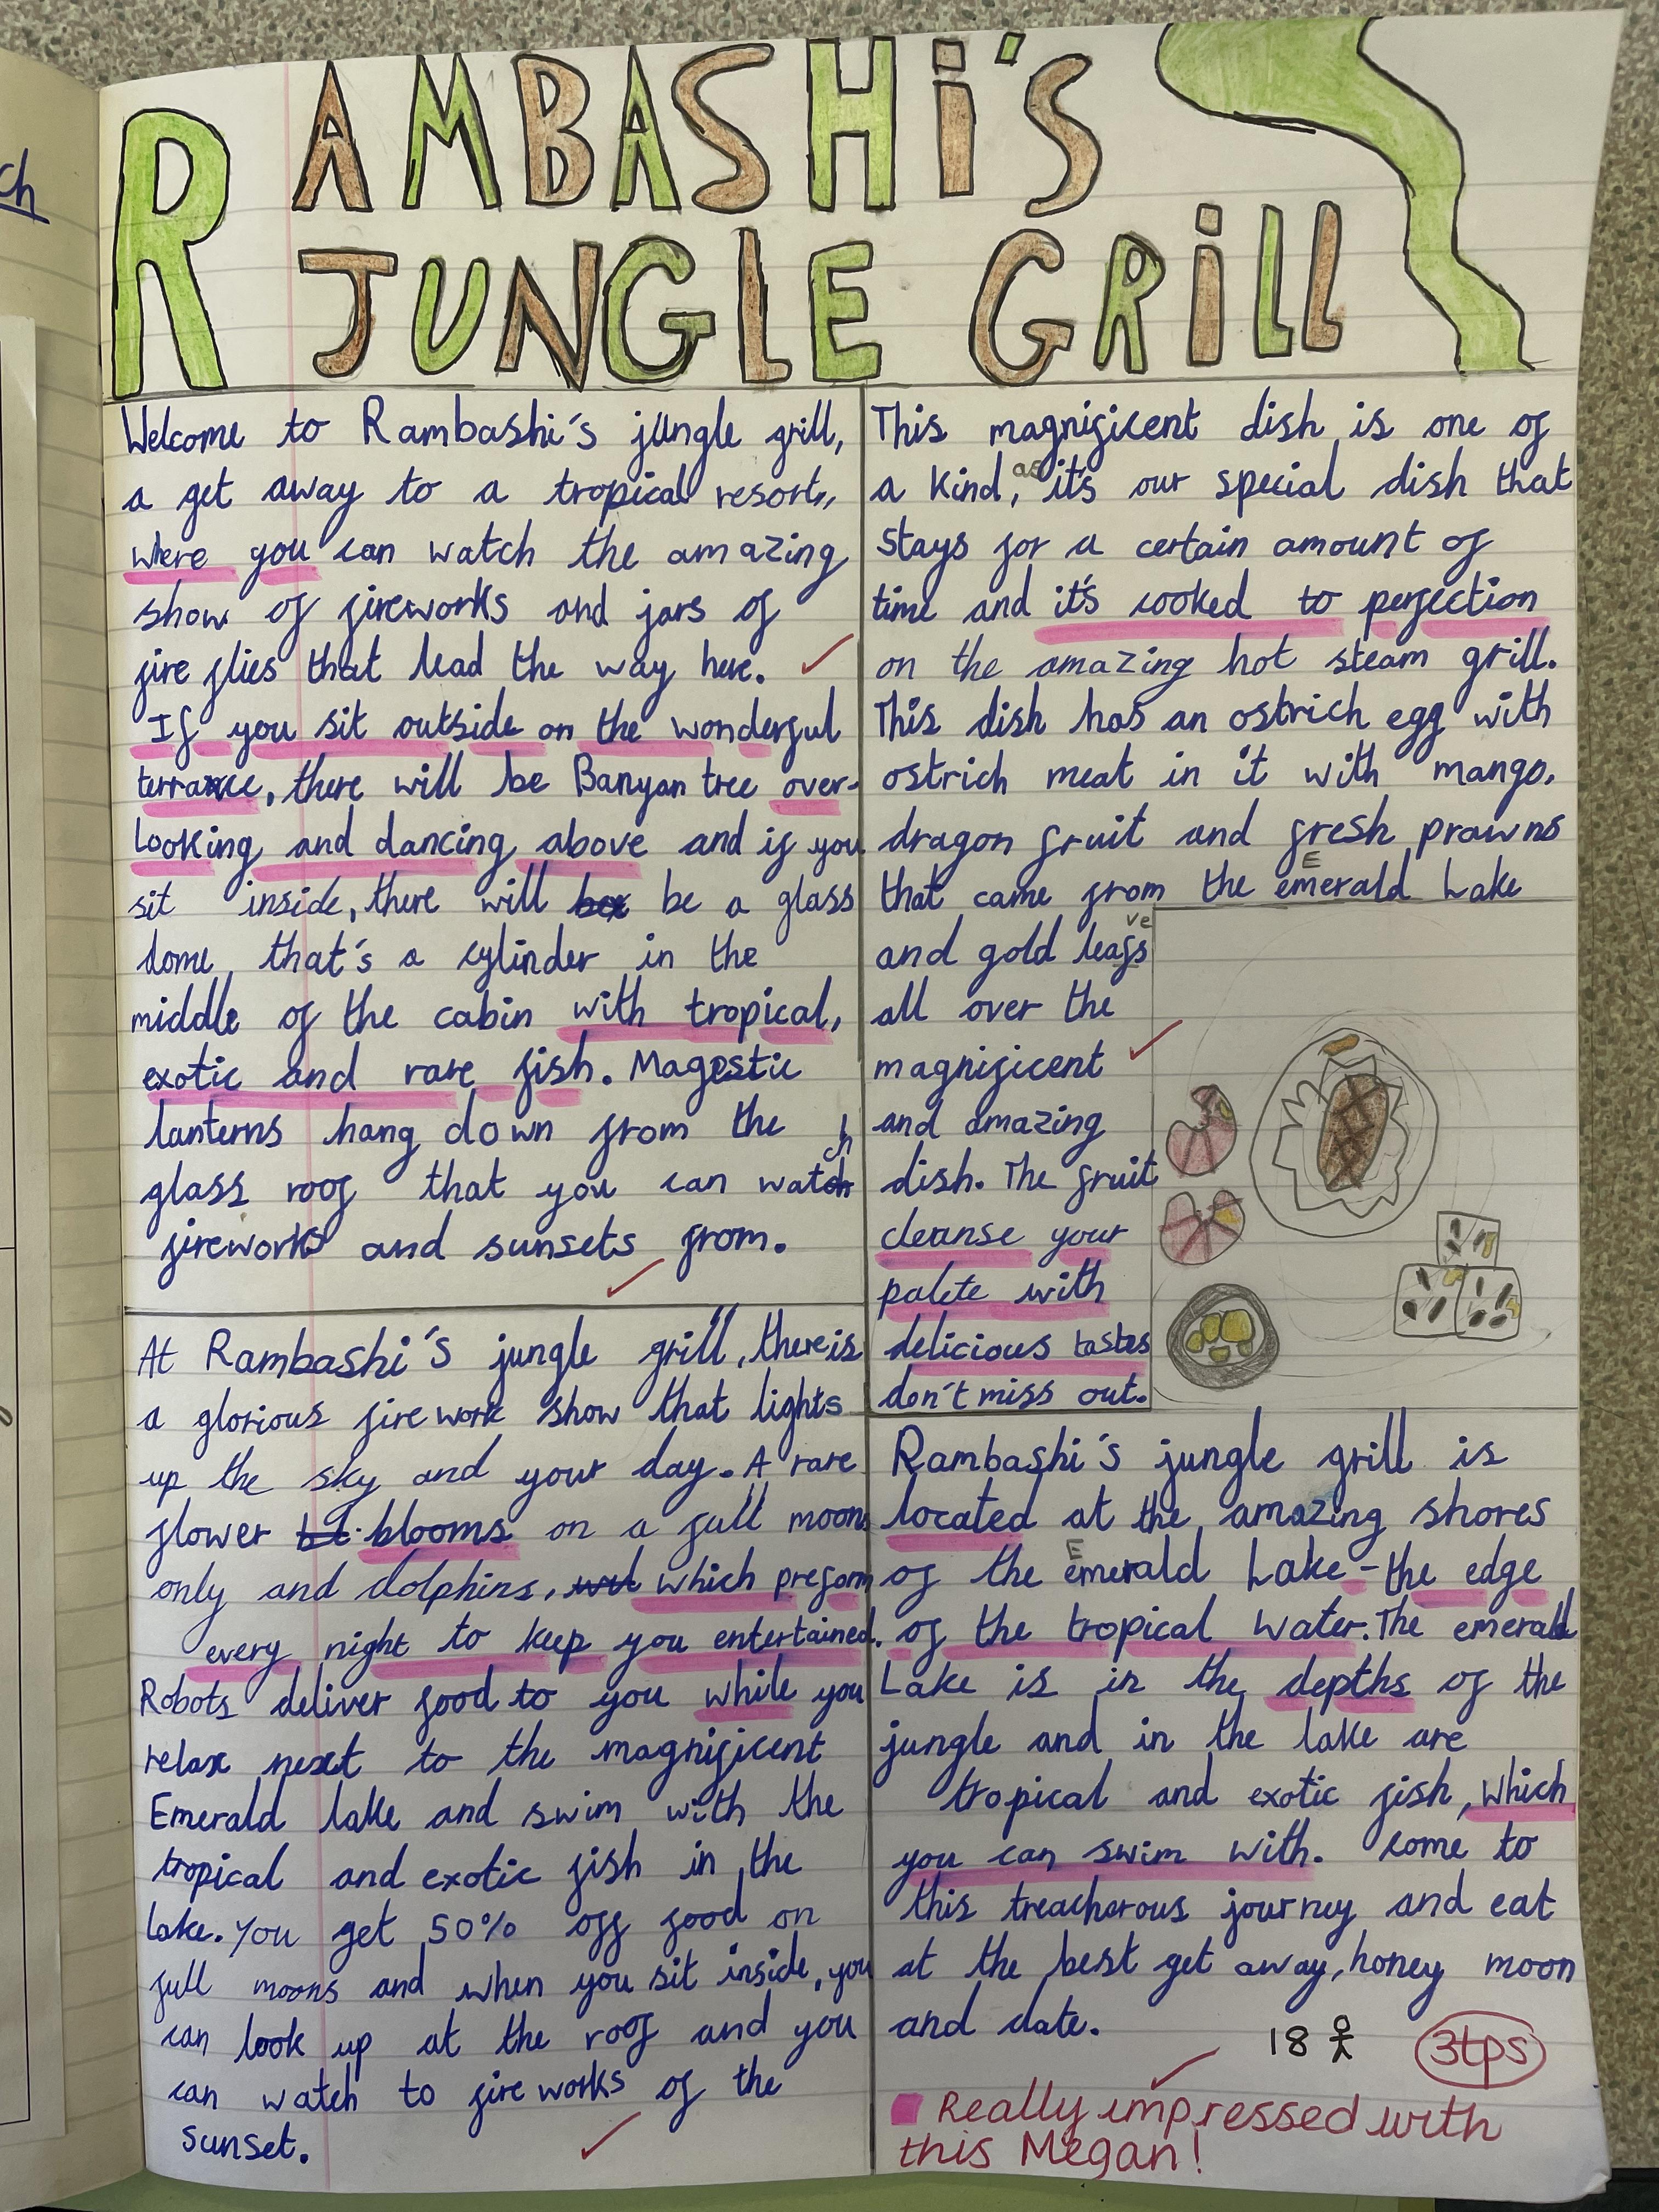 ch
RAMBASHi'S
JUNGLE GRiLL
Welcome to Rambashi's jungle grill,
a get away to a tropical resort,
where you can watch the amazing
show of fireworks and jars of
fire flies that lead the way here.
If you sit outside on the wonderful
terrance, there will be Banyan tree over-
looking and dancing above and if you
sit inside, there will be a glass
dome that's a cylinder in the
middle of the cabin with tropical,
exotic and rare fish. Magestic
lanterns hang down from the
glass roof that you can watch
fireworks and sunsets from.
At Rambashi's jungle grill, there is
a glorious firework show that lights
up the sky and your day. A rare
flower blooms on a full moon
only and dolphins, which preform
every night to keep you entertained.
Robots deliver food to you while you
relax next to the magnificent
Emerald lake and swim with the
tropical and exotic fish in the
lake. You get 50% off food on
full moons and when you sit inside, you
can look up at the roof and you
can watch to fireworks of the
sunset.
This magnificent dish is one of
a kind, as it's our special dish that
stays for a certain amount of
time and it's cooked to perfection
on the amazing hot steam grill.
This dish has an ostrich egg with
ostrich meat in it with mango,
dragon fruit and fresh prawns
that came from the Emerald Lake
and gold leaves
all over the
magnificent
and amazing
dish. The fruit
cleanse your
palete with
delicious tastes
don't miss out.
Rambashi's jungle grill is
located at the amazing shores
of the Emerald Lake - the edge
of the tropical water. The emerald
Lake is in the depths of the
jungle and in the lake are
tropical and exotic fish, which
you can swim with. come to
this treacherous journey and eat
at the best get away, honey moon
and date.
18
3tps
Really impressed with
this Megan!